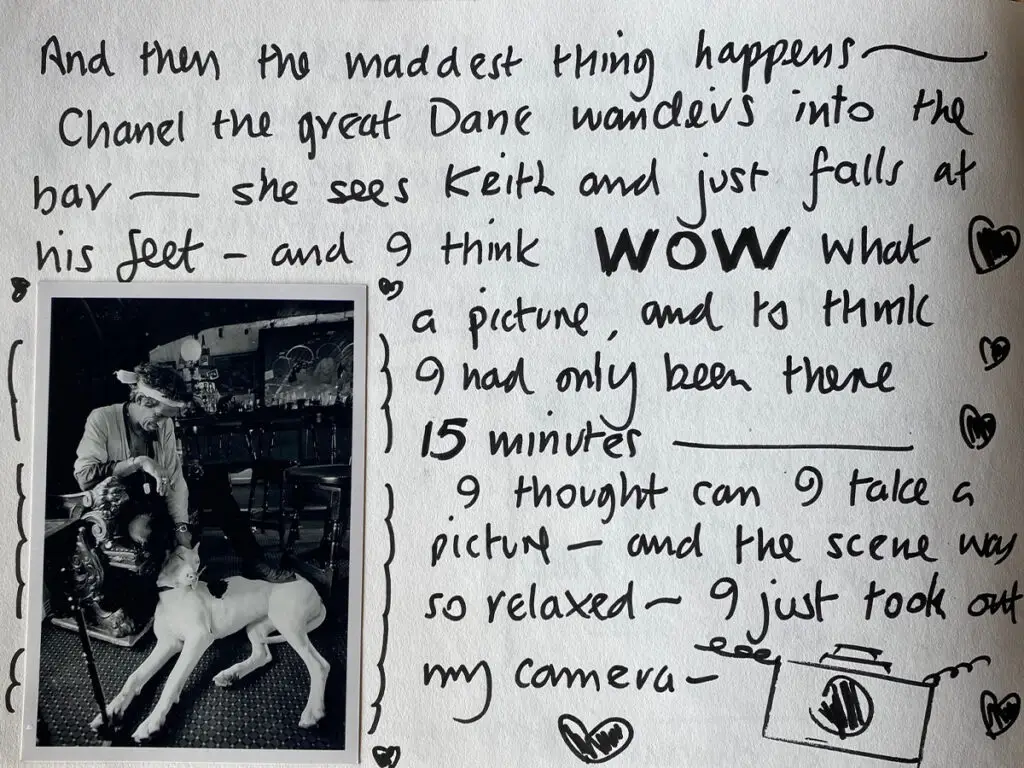 And then the maddest thing happens —
Chanel the great Dane wanders into the
bar — she sees Keith and just falls at
his feet - and I think WOW what
a picture, and to think
I had only been there
15 minutes —
I thought can I take a
picture — and the scene was
so relaxed - I just took out
my camera -